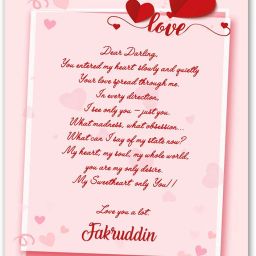 love
Dear Darling,
You entered my heart slowly and quietly
Your love spread through me.
In every direction,
I see only you – just you.
What madness, what obsession...
What can I say of my state now?
My heart, my soul, my whole world,
you are my only desire.
My Sweetheart only You!!
Love you a lot
Fakruddin